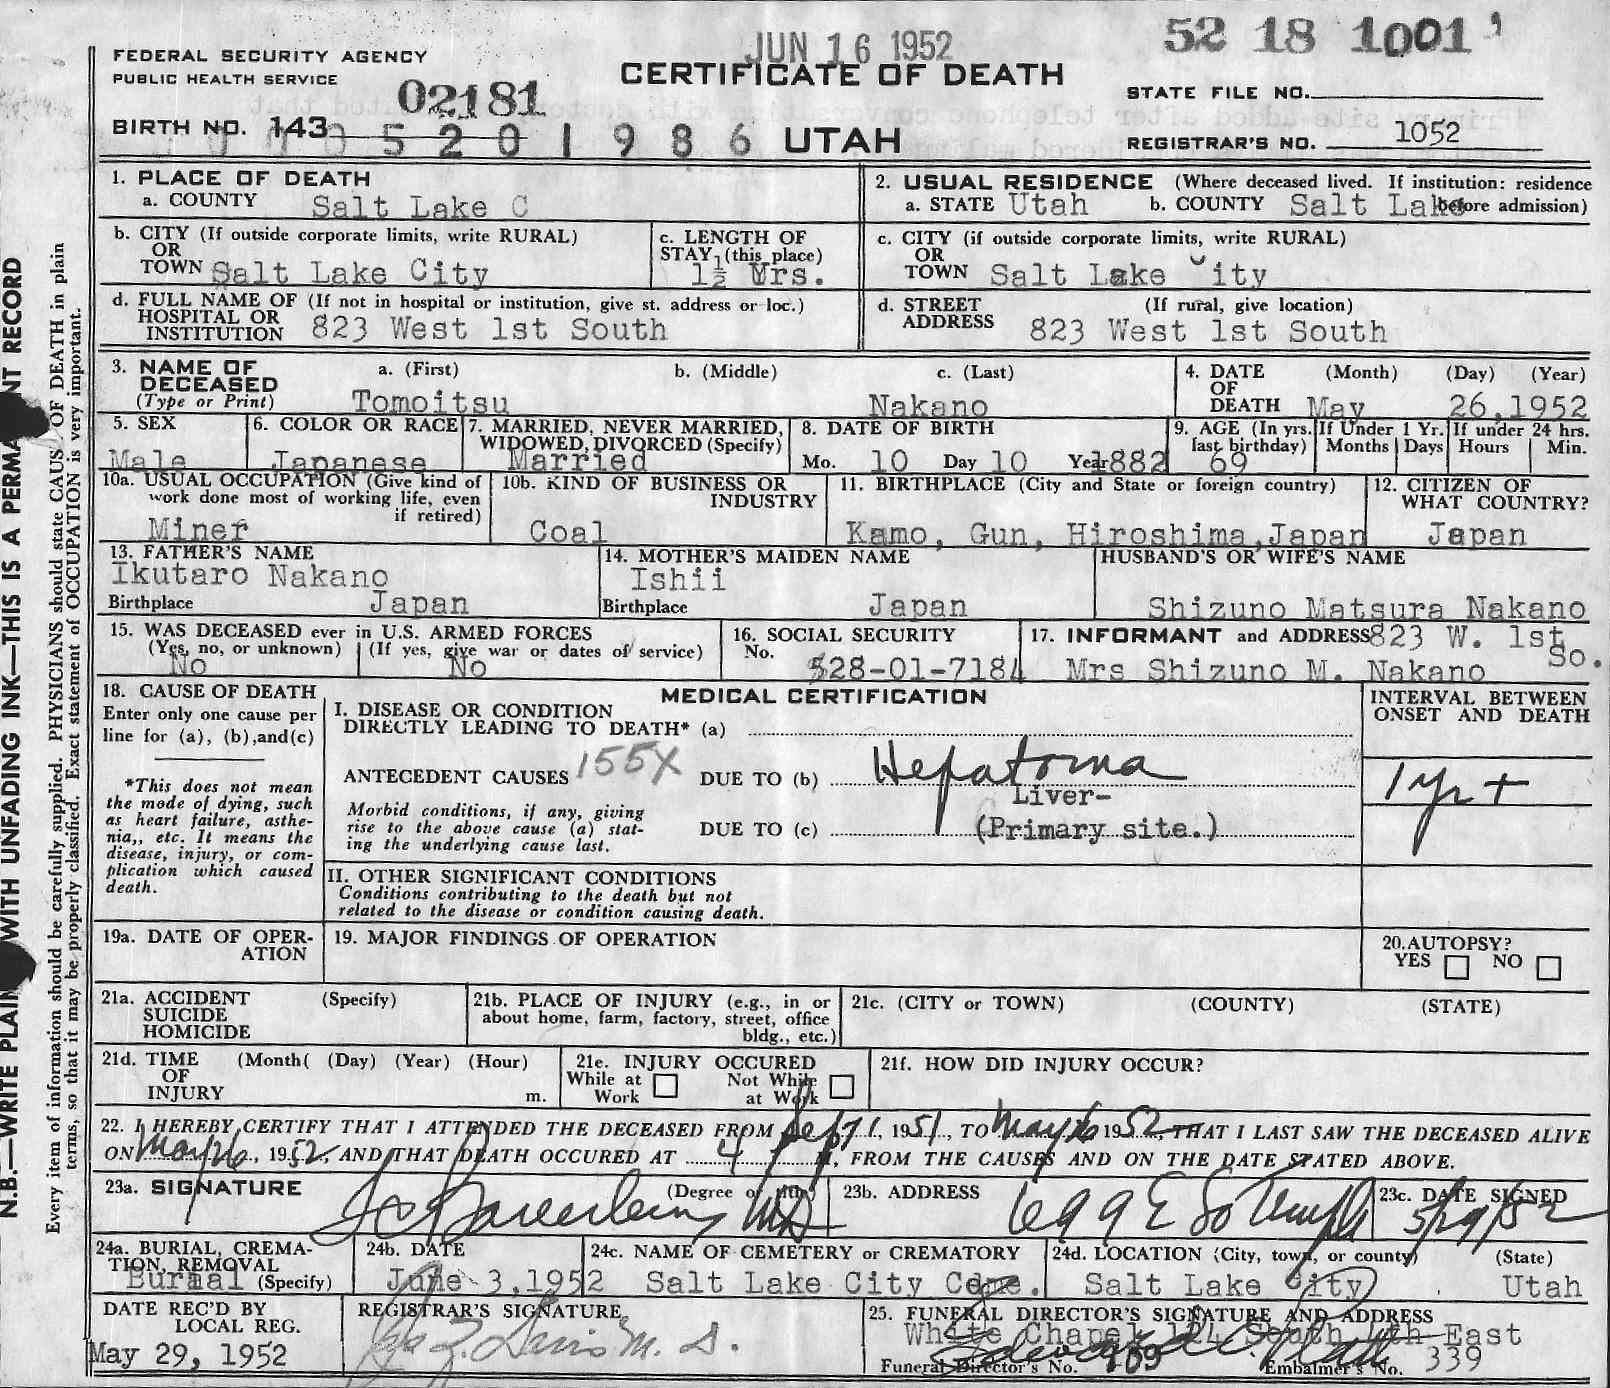 JUN 16 1952
52 18 1001
FEDERAL SECURITY AGENCY
PUBLIC HEALTH SERVICE
CERTIFICATE OF DEATH
STATE FILE NO.
02181
BIRTH NO. 143
520 1986 UTAH
REGISTRAR'S NO. 1052
1. PLACE OF DEATH
a. COUNTY Salt Lake C
2. USUAL RESIDENCE (Where deceased lived. If institution: residence before admission)
a. STATE Utah b. COUNTY Salt Lake
b. CITY (If outside corporate limits, write RURAL)
OR
TOWN Salt Lake City
c. LENGTH OF
STAY (this place)
1½ Yrs.
c. CITY (if outside corporate limits, write RURAL)
OR
TOWN Salt Lake City
d. FULL NAME OF (If not in hospital or institution, give st. address or loc.)
HOSPITAL OR
INSTITUTION 823 West 1st South
d. STREET (If rural, give location)
ADDRESS 823 West 1st South
3. NAME OF
DECEASED
(Type or Print)
a. (First) b. (Middle) c. (Last)
Tomoitsu Nakano
4. DATE (Month) (Day) (Year)
OF
DEATH May 26,1952
5. SEX
Male
6. COLOR OR RACE
Japanese
7. MARRIED, NEVER MARRIED,
WIDOWED, DIVORCED (Specify)
Married
8. DATE OF BIRTH
Mo. 10 Day 10 Year 1882
9. AGE (In yrs. last birthday)
69
If Under 1 Yr.
Months Days
If under 24 hrs.
Hours Min.
10a. USUAL OCCUPATION (Give kind of
work done most of working life, even
if retired)
Miner
10b. KIND OF BUSINESS OR
INDUSTRY
Coal
11. BIRTHPLACE (City and State or foreign country)
Kamo, Gun, Hiroshima,Japan
12. CITIZEN OF
WHAT COUNTRY?
Japan
13. FATHER'S NAME
Ikutaro Nakano
Birthplace Japan
14. MOTHER'S MAIDEN NAME
Ishii
Birthplace Japan
HUSBAND'S OR WIFE'S NAME
Shizuno Matsura Nakano
15. WAS DECEASED ever in U.S. ARMED FORCES
(Yes, no, or unknown) (If yes, give war or dates of service)
No No
16. SOCIAL SECURITY
No. 528-01-7184
17. INFORMANT and ADDRESS 823 W. 1st So.
Mrs Shizuno M. Nakano
18. CAUSE OF DEATH
Enter only one cause per
line for (a), (b),and(c)
*This does not mean
the mode of dying, such
as heart failure, asthe-
nia,, etc. It means the
disease, injury, or com-
plication which caused
death.
MEDICAL CERTIFICATION
I. DISEASE OR CONDITION
DIRECTLY LEADING TO DEATH* (a)
ANTECEDENT CAUSES 155X DUE TO (b) Hepatoma
Liver-
Morbid conditions, if any, giving
rise to the above cause (a) stat-
ing the underlying cause last.
DUE TO (c) (Primary site.)
INTERVAL BETWEEN
ONSET AND DEATH
1 yr +
II. OTHER SIGNIFICANT CONDITIONS
Conditions contributing to the death but not
related to the disease or condition causing death.
19a. DATE OF OPER-
ATION
19. MAJOR FINDINGS OF OPERATION
20.AUTOPSY?
YES NO
21a. ACCIDENT (Specify)
SUICIDE
HOMICIDE
21b. PLACE OF INJURY (e.g., in or
about home, farm, factory, street, office
bldg., etc.)
21c. (CITY or TOWN) (COUNTY) (STATE)
21d. TIME (Month( (Day) (Year) (Hour)
OF
INJURY m.
21e. INJURY OCCURED
While at Work Not While at Work
21f. HOW DID INJURY OCCUR?
22. I HEREBY CERTIFY THAT I ATTENDED THE DECEASED FROM Sept 1, 1951, TO May 26 1952, THAT I LAST SAW THE DECEASED ALIVE
ON May 26, 1952, AND THAT DEATH OCCURED AT 4 M, FROM THE CAUSES AND ON THE DATE STATED ABOVE.
23a. SIGNATURE (Degree or title)
MD
23b. ADDRESS
699 E So Temple
23c. DATE SIGNED
5/29/52
24a. BURIAL, CREMA-
TION, REMOVAL
Burial (Specify)
24b. DATE
June 3,1952
24c. NAME OF CEMETERY or CREMATORY
Salt Lake City Ceme.
24d. LOCATION (City, town, or county) (State)
Salt Lake City Utah
DATE REC'D BY
LOCAL REG.
May 29, 1952
REGISTRAR'S SIGNATURE
M. D.
25. FUNERAL DIRECTOR'S SIGNATURE AND ADDRESS
White Chapel 124 South 4th East
Funeral Director's No. 409 Embalmer's No. 339
N.B.—WRITE PLAIN WITH UNFADING INK—THIS IS A PERMA NT RECORD
Every item of information should be carefully supplied. PHYSICIANS should state CAUS OF DEATH in plain
terms, so that it may be properly classified. Exact statement of OCCUPATION is very important.